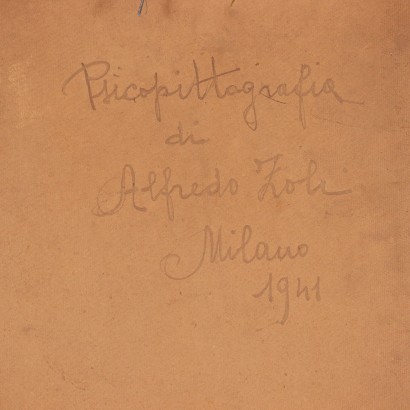 Psicopittografia
di
Alfredo Zoli
Milano
1941